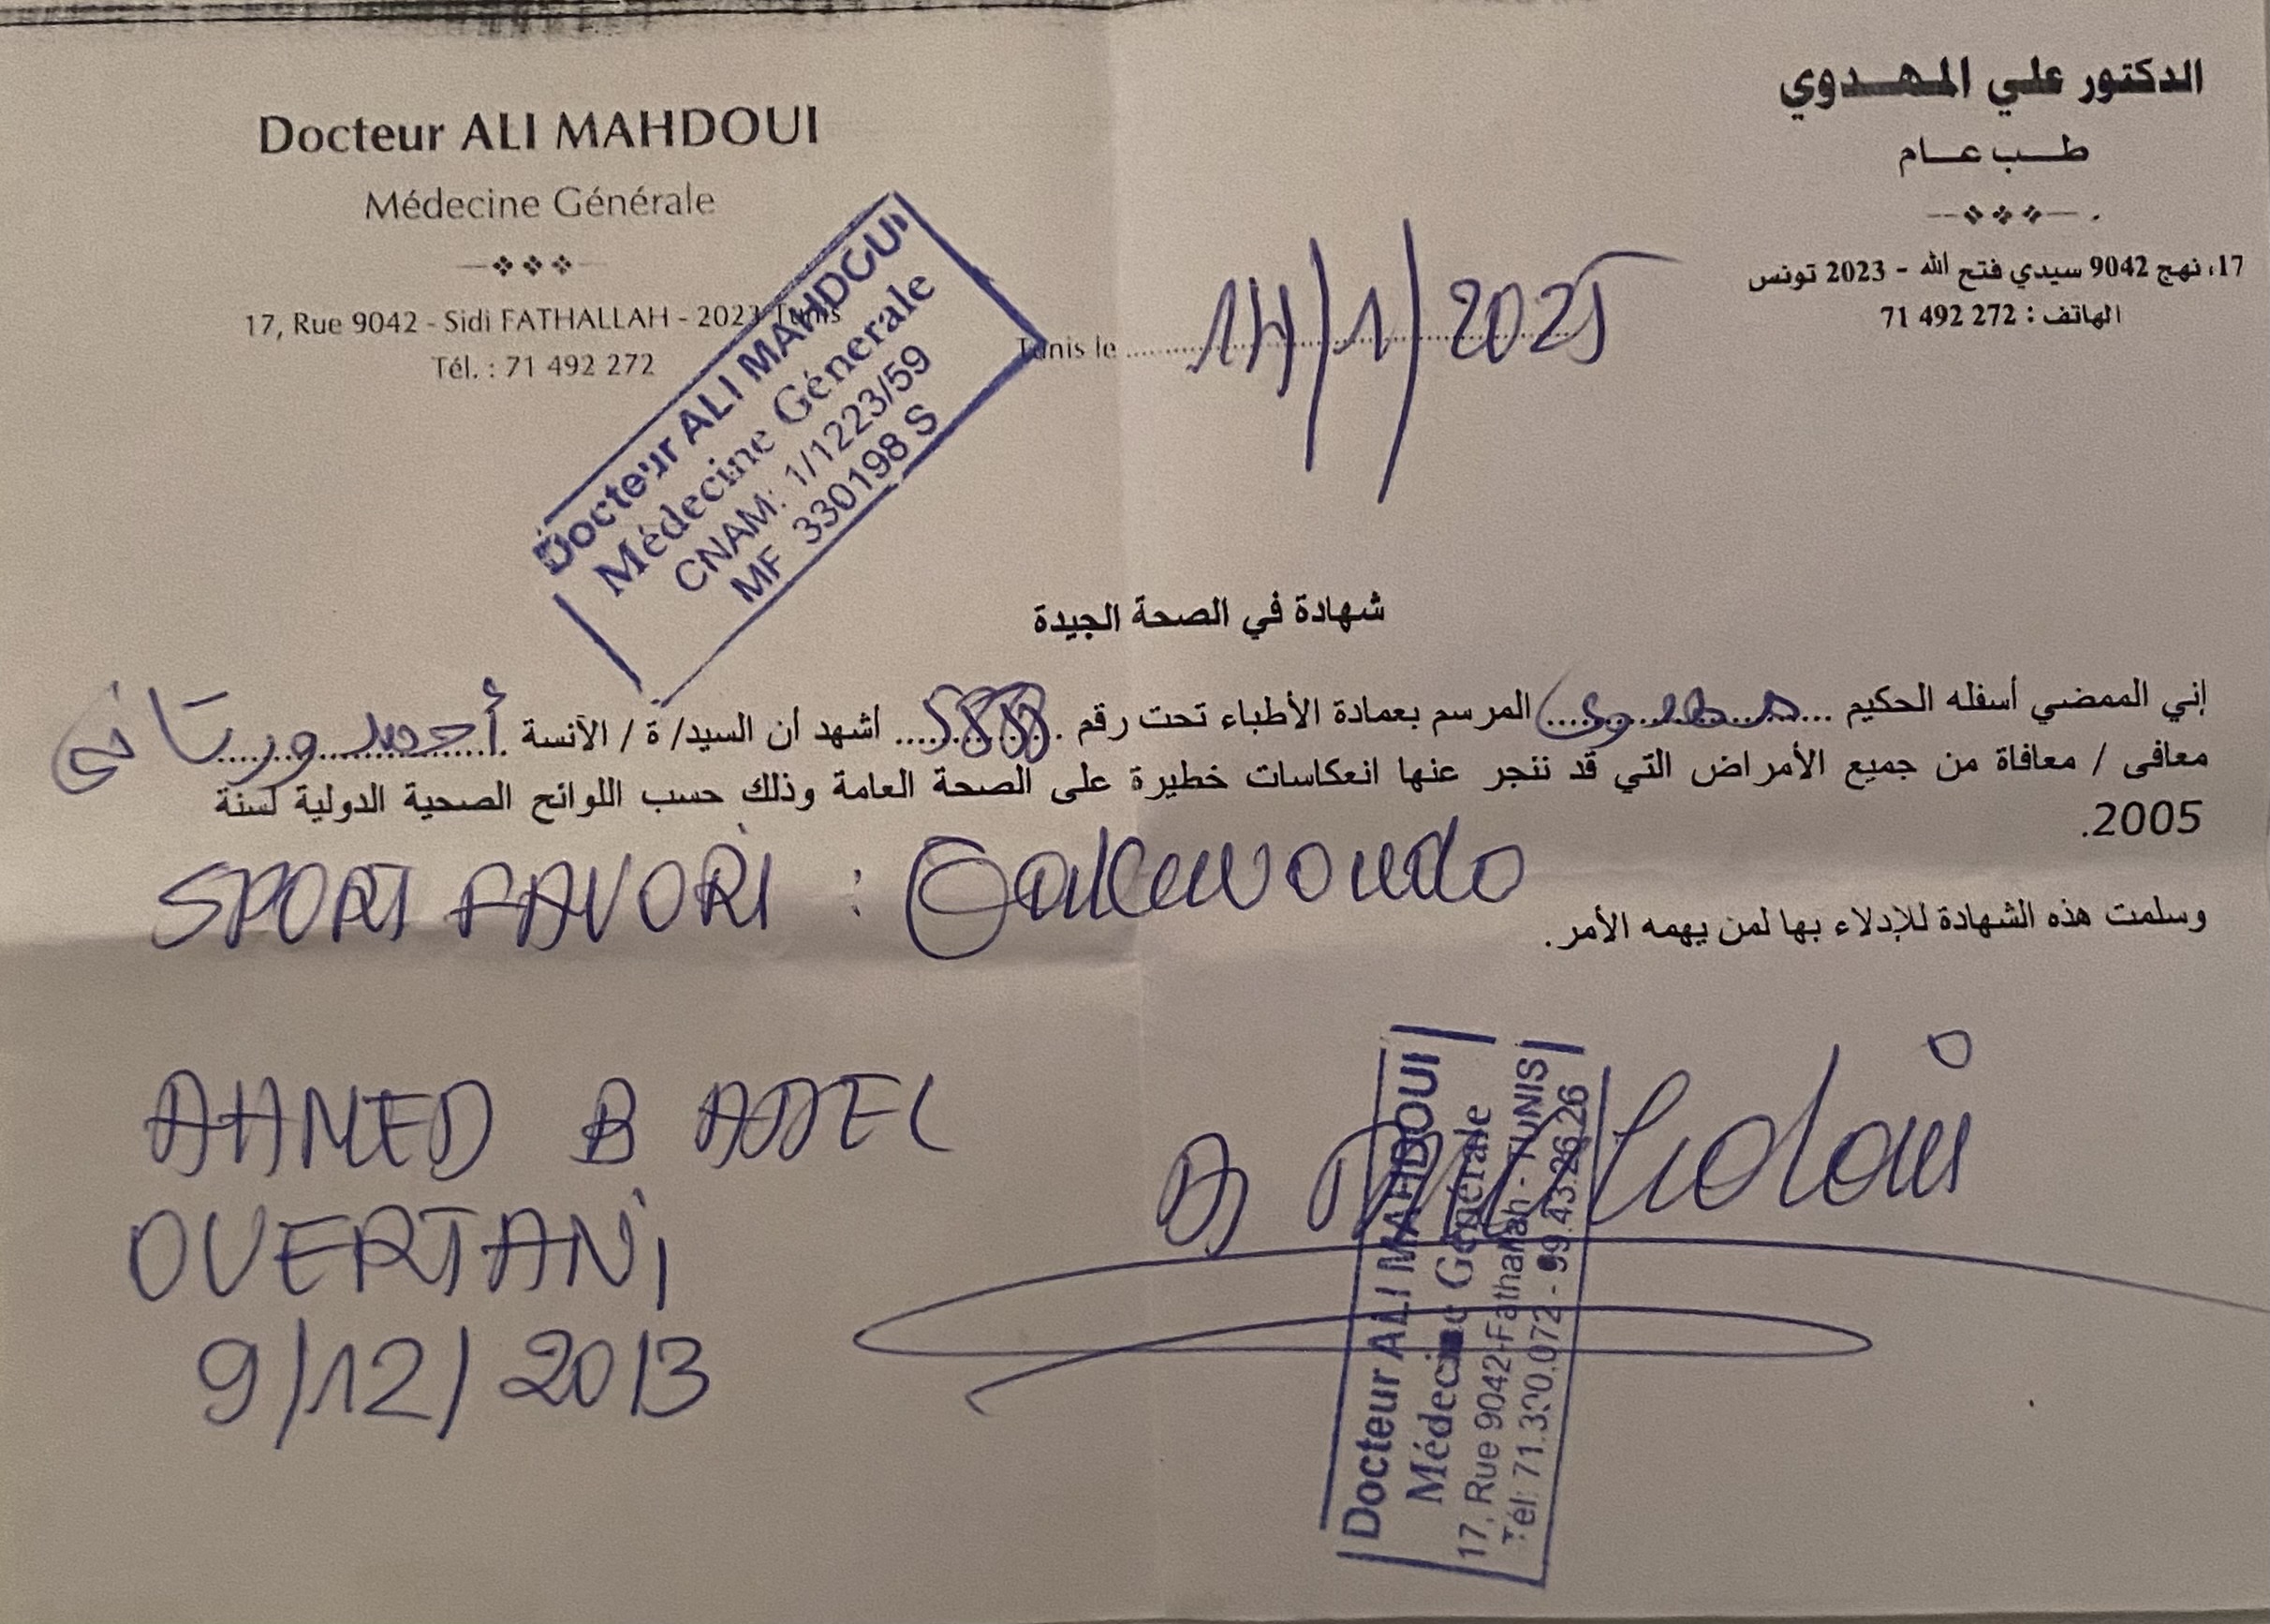 Docteur ALI MAHDOUI
Médecine Générale
17, Rue 9042 - Sidi FATHALLAH - 2023 Tunis
Tél. : 71 492 272
الدكتور علي المهدوي
طب عام
17، نهج 9042 سيدي فتح الله - 2023 تونس
الهاتف : 272 492 71
Docteur ALI MAHDOUI
Médecine Génerale
CNAM: 1/1223/59
MF 330198 S
Tunis le 14/1/2025
شهادة في الصحة الجيدة
إني الممضي أسفله الحكيم ... مهدوي ... المرسم بعمادة الأطباء تحت رقم ... أشهد أن السيد/ ة / الآنسة أحمد ورتاني
معافى / معافاة من جميع الأمراض التي قد ننجر عنها انعكاسات خطيرة على الصحة العامة وذلك حسب اللوائح الصحية الدولية لسنة
2005.
SPORT FAVORI :
وسلمت هذه الشهادة للإدلاء بها لمن يهمه الأمر.
AHMED B ADEL
OUERTANI
9/12/2013
Dr Mahdoui
Docteur ALI MAHDOUI
Médecine Générale
17, Rue 9042-Fathallah - TUNIS
Tél: 71.390.072 - 99.43.26.26